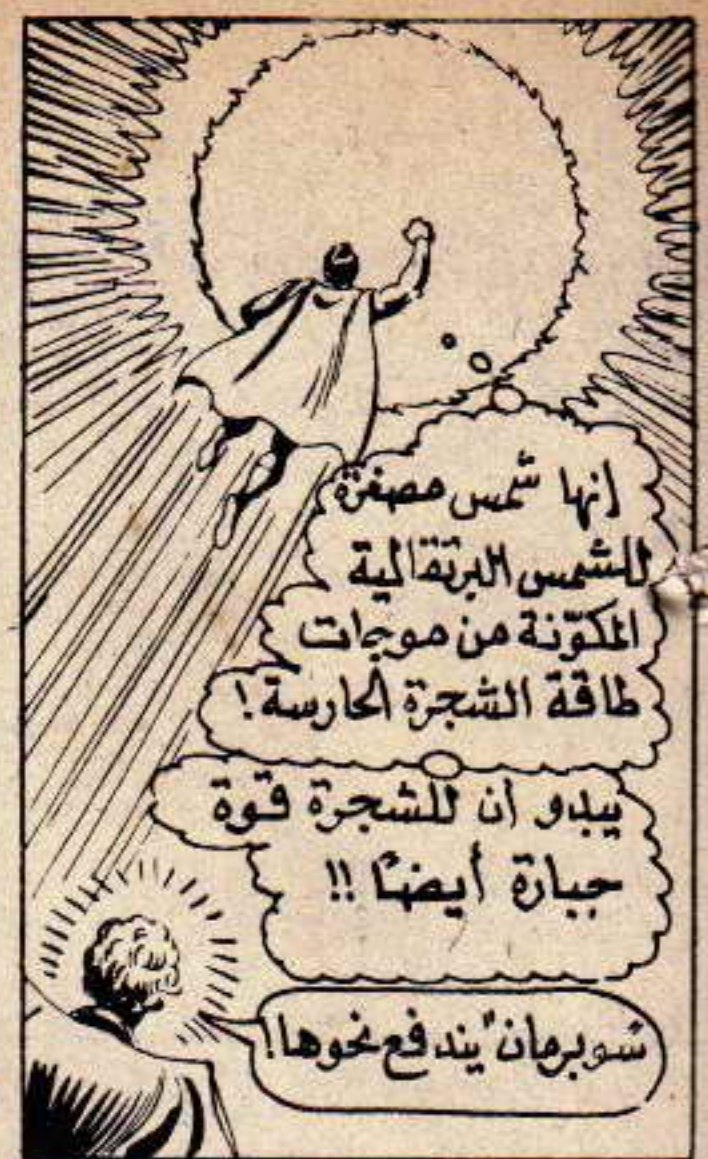 إنها شمس مصغرة
للشمس البرتقالية
المكوّنة من موجات
طاقة الشجرة الحارسة!
يبدو أن للشجرة قوة
جبارة أيضًا !!
سوبرمان" يندفع نحوها!